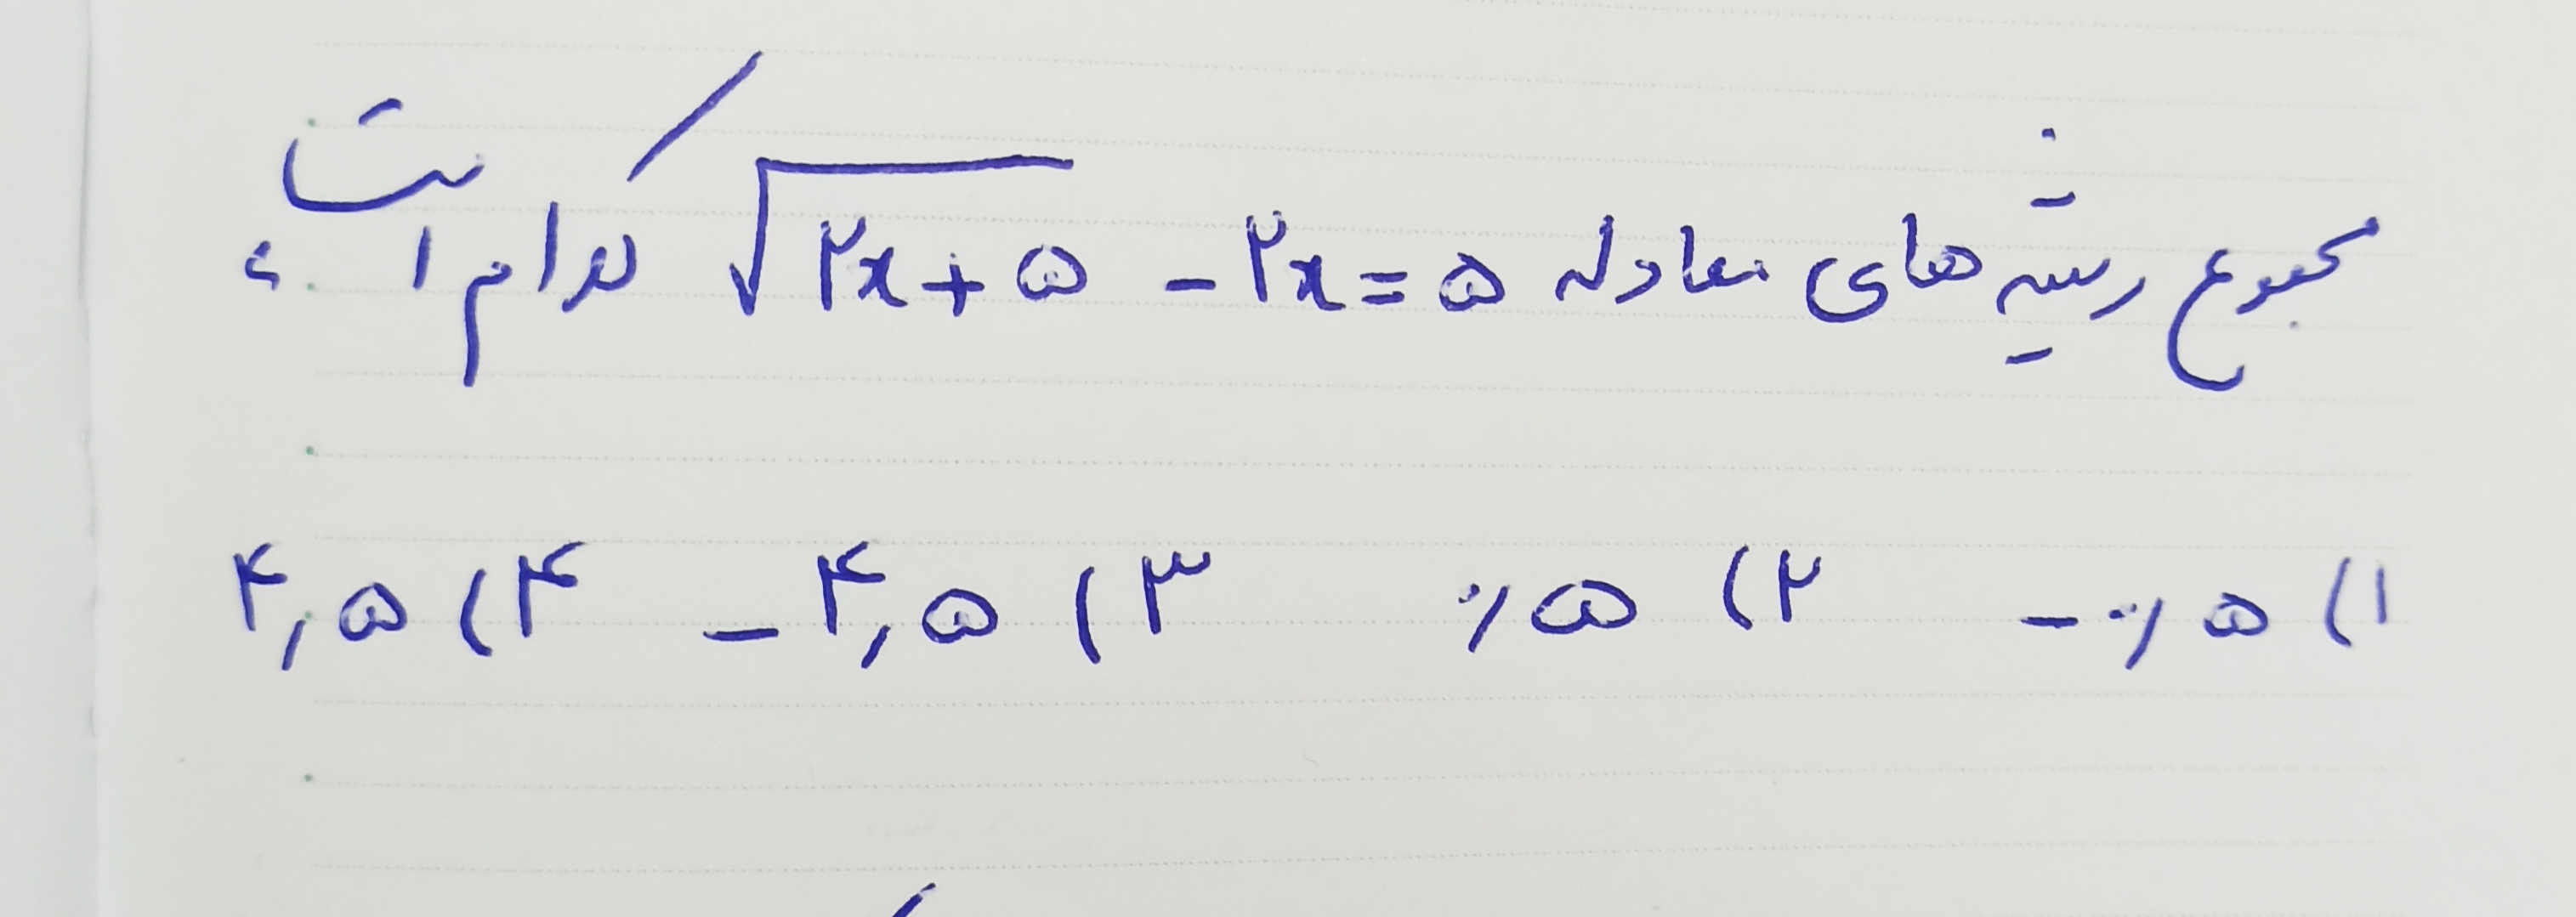 مجموع ریشه‌های معادله √(۲x+۵) −۲x=۵ کدام است؟
۱) −۰٫۵ ۲) ۰٫۵ ۳) −۴٫۵ ۴) ۴٫۵